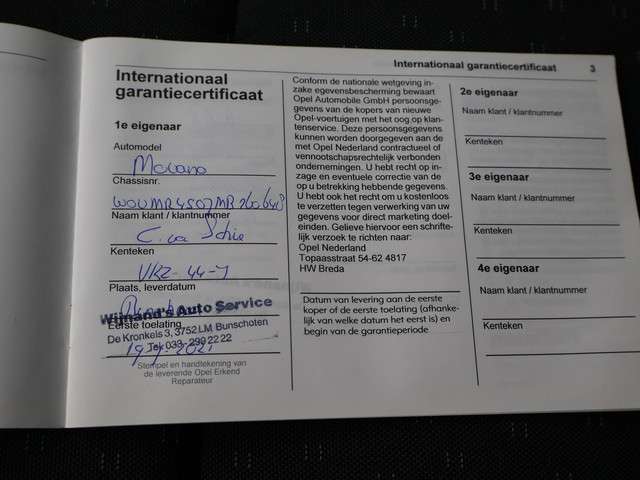 Internationaal garantiecertificaat 3
Internationaal
garantiecertificaat
1e eigenaar
Automodel
Movano
Chassisnr.
Naam klant / klantnummer
C. van Schie
Kenteken
VRZ-44-J
Plaats, leverdatum
Wijnand's Auto Service
Eerste toelating
De Kronkels 3, 3752 LM Bunschoten
Tel. 033-299 22 22
Stempel en handtekening van
de leverende Opel Erkend
Reparateur
Conform de nationale wetgeving in-
zake egevensbescherming bewaart
Opel Automobile GmbH persoonsge-
gevens van de kopers van nieuwe
Opel-voertuigen met het oog op klan-
tenservice. Deze persoonsgegevens
kunnen worden doorgegeven aan de
met Opel Nederland contractueel of
vennootschapsrechtelijk verbonden
ondernemingen. U hebt recht op in-
zage en eventuele correctie van de
op u betrekking hebbende gegevens.
U hebt ook het recht om u kosteloos
te verzetten tegen verwerking van uw
gegevens voor direct marketing doel-
einden. Gelieve hiervoor een schrifte-
lijk verzoek te richten naar:
Opel Nederland
Topaasstraat 54-62 4817
HW Breda
Datum van levering aan de eerste
koper of de eerste toelating (afhanke-
lijk van welke datum het eerst is) en
begin van de garantieperiode
2e eigenaar
Naam klant / klantnummer
Kenteken
3e eigenaar
Naam klant / klantnummer
Kenteken
4e eigenaar
Naam klant / klantnummer
Kenteken